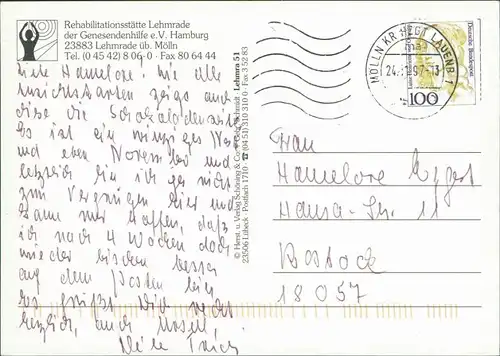 Rehabilitationsstätte Lehmrade
der Genesendenhilfe e.V. Hamburg
23883 Lehmrade üb. Mölln
Tel. (0 45 42) 8 06-0 · Fax 80 64 44
Liebe Hannelore! Wie alle
Ansichtskarten zeigt auch
diese die Schokoladenseite.
Es ist ein winziges Nest
und eben November und
letztlich bin ich ja nicht
zum Vergnügen hier und
kann nur hoffen, daß
ich nach 4 Wochen doch
wieder bißchen besser
auf dem Posten bin.
Es grüßt Dich recht
herzlich, auch
Deine
© Herst. u. Verlag Schöning & Co. + Gebr. Schmidt, Lehmra 51
23506 Lübeck · Postfach 1710 ☎ (04 51) 310 310 · Fax 3 52 83
MÖLLN KR HZGT LAUENB 1
24.
100
Deutsche Bundespost
Frau
Hannelore Eggert
Hansa-Str. 11
Rostock
18057